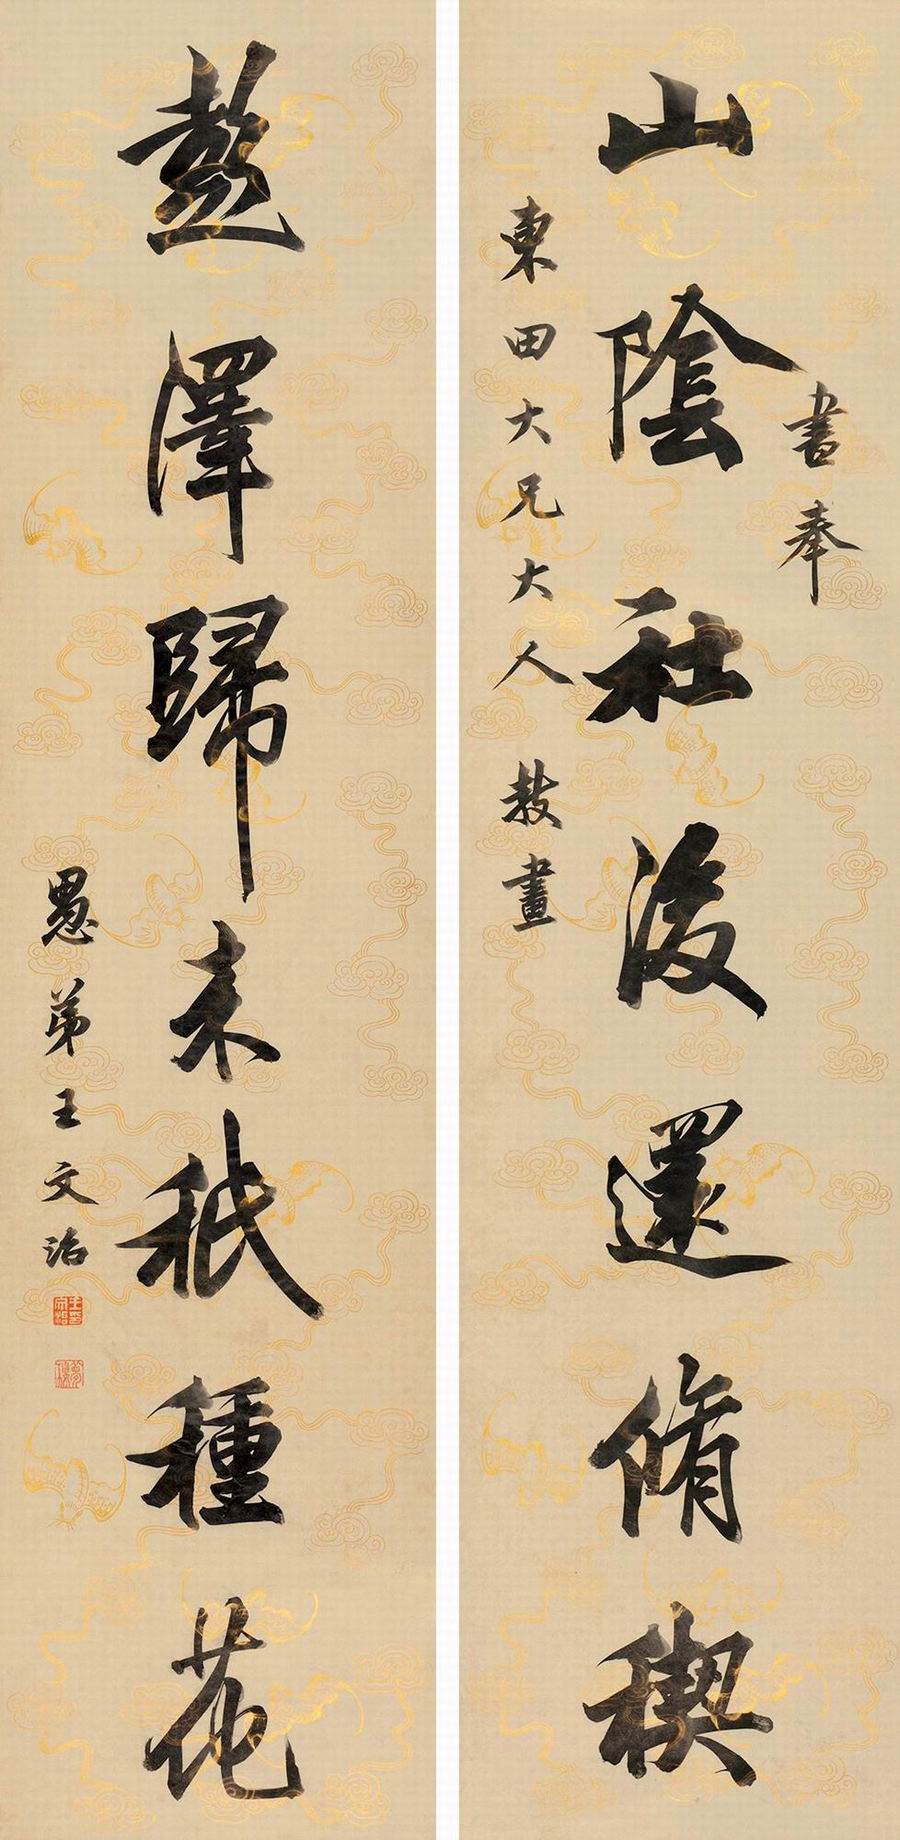 書奉
山陰社後還脩禊
東田大兄大人教畫
彭澤歸来秖種花
愚弟王文治